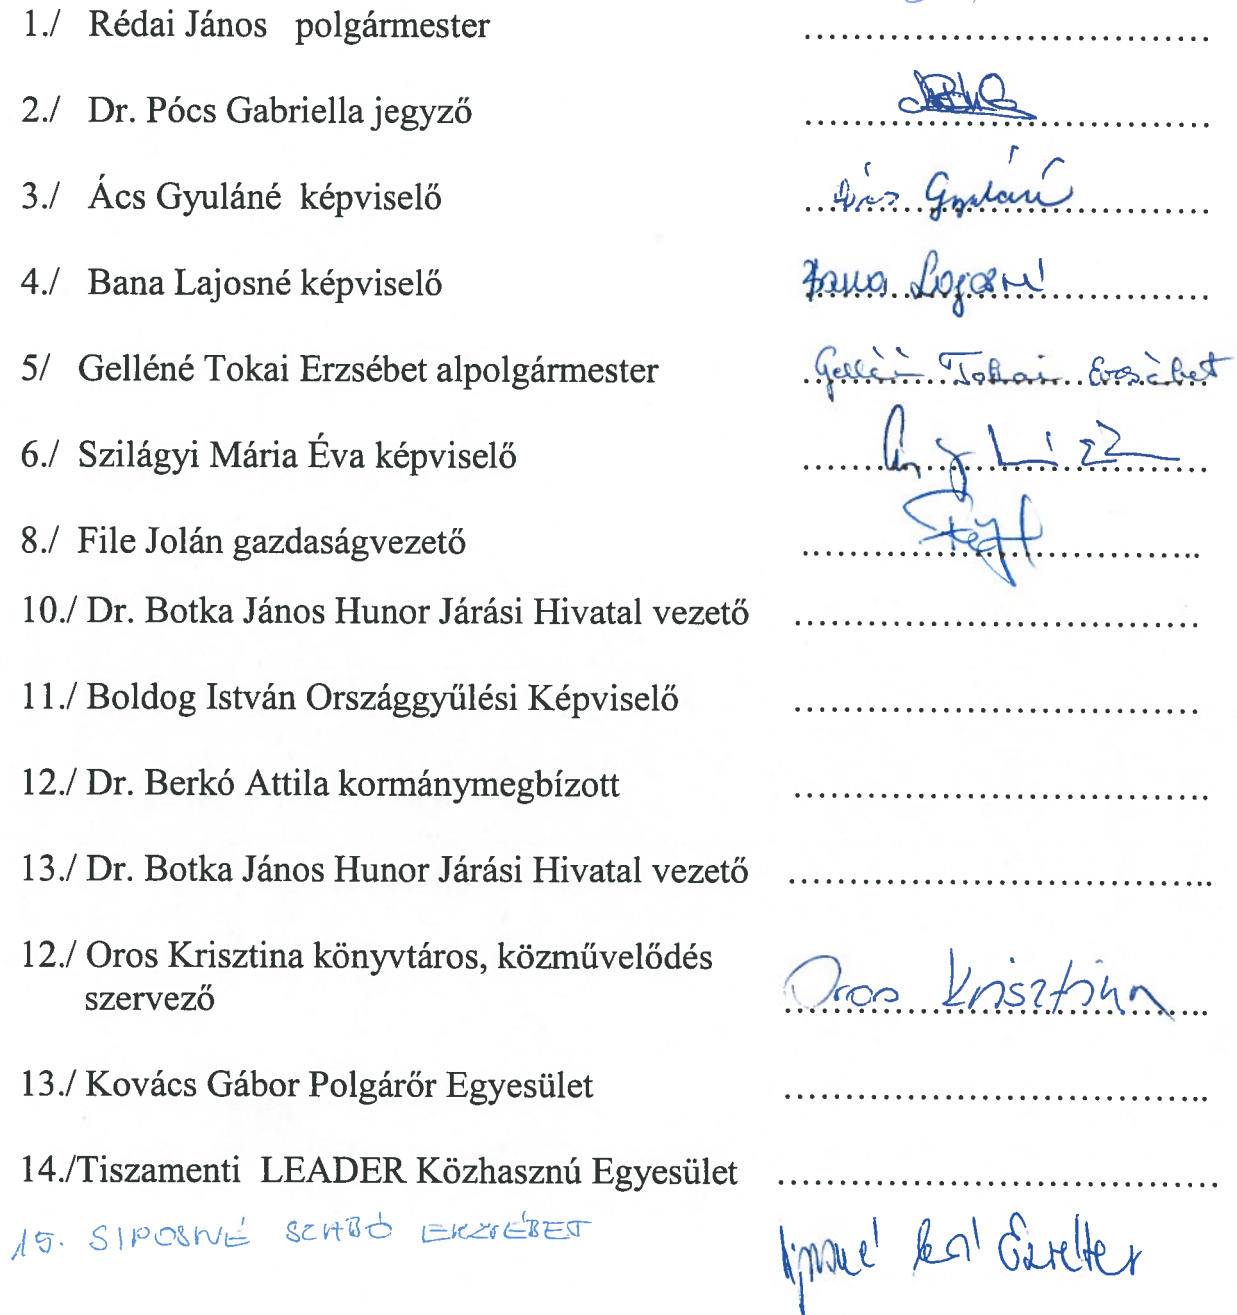 1./ Rédai János polgármester ..................................
2./ Dr. Pócs Gabriella jegyző ..................................
3./ Ács Gyuláné képviselő Ács Gyuláné
4./ Bana Lajosné képviselő Bana Lajosné
5/ Gelléné Tokai Erzsébet alpolgármester Gelléné Tokai Erzsébet
6./ Szilágyi Mária Éva képviselő ..................................
8./ File Jolán gazdaságvezető ..................................
10./ Dr. Botka János Hunor Járási Hivatal vezető ..................................
11./ Boldog István Országgyűlési Képviselő ..................................
12./ Dr. Berkó Attila kormánymegbízott ..................................
13./ Dr. Botka János Hunor Járási Hivatal vezető ..................................
12./ Oros Krisztina könyvtáros, közművelődés
szervező Oros Krisztina
13./ Kovács Gábor Polgárőr Egyesület ..................................
14./Tiszamenti LEADER Közhasznú Egyesület ..................................
15. SIPOSNÉ SZABÓ ERZSÉBET